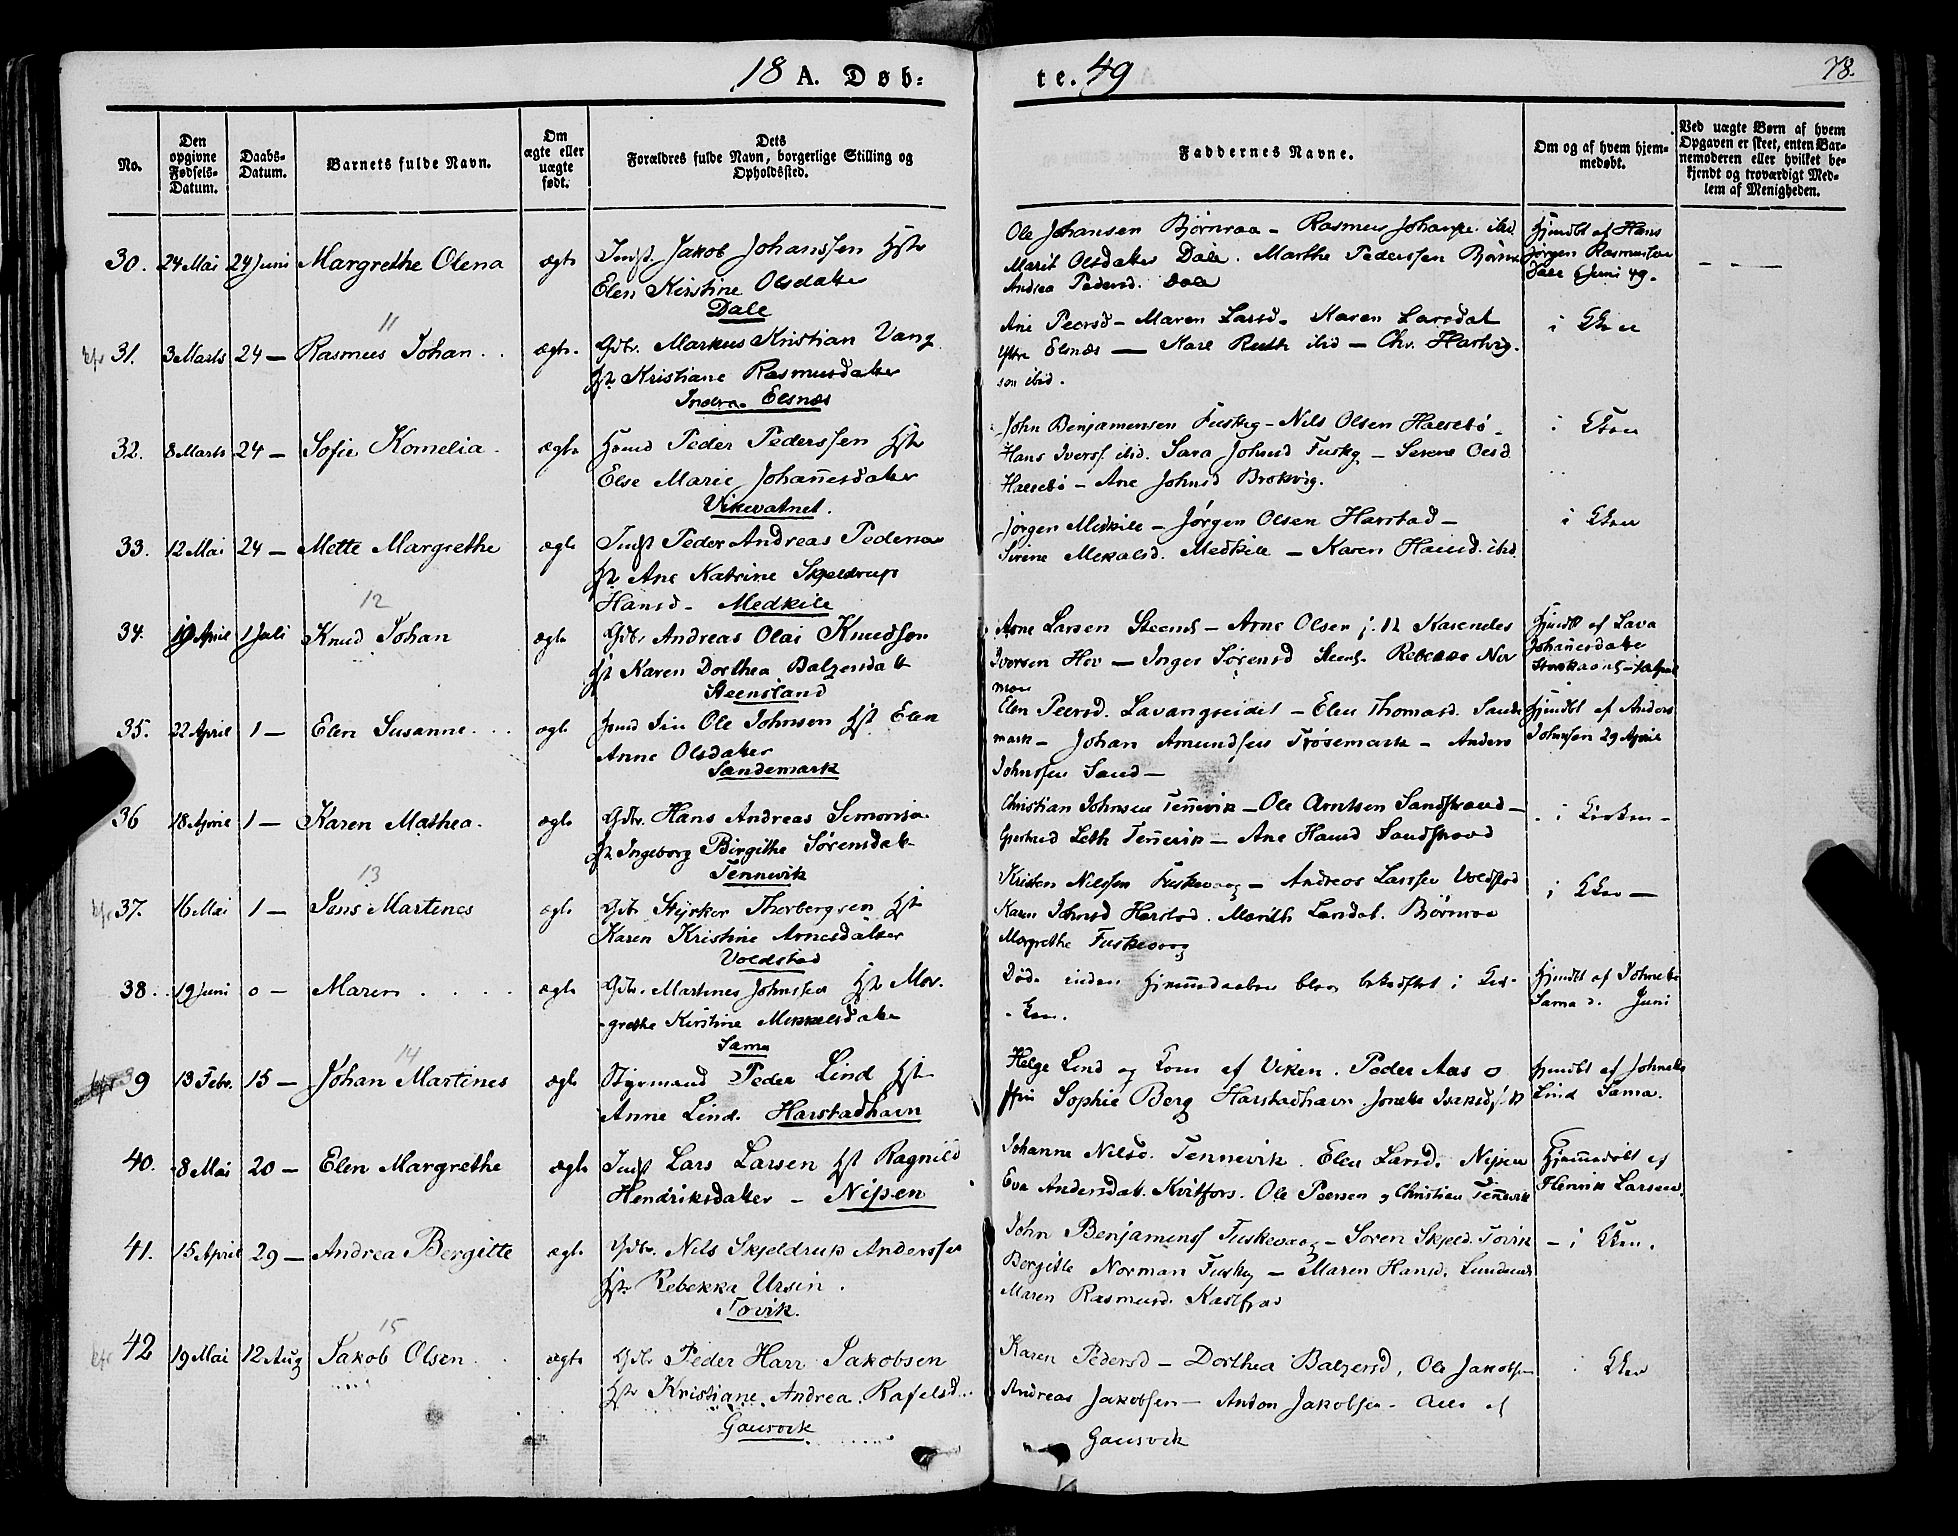 18 A. Døb: te. 49
78.
No.
Den opgivne Fødsels-Datum.
Daabs-Datum.
Barnets fulde Navn.
Om ægte eller uægte født.
Dets Forældres fulde Navn, borgerlige Stilling og Opholdssted.
Faddernes Navne.
Om og af hvem hjem-medøbt.
Ved uægte Børn af hvem Opgaven er skeet, enten Bar-nemoderen eller hvilket be-kjendt og troværdigt Med-lem af Menigheden.
30. 24 Mai 24 Juni Margrethe Olena ægte Indst Jakob Johanssen Hst
Elen Kirstine Olsdatter
Dale
Ole Johansen Bjørnraa - Rasmus Johanse. ibid
Marit Olsdatter Dale. Marthe Pederssen Bjørnr
Andrea Pedersd. Dale
Hjmdbt af Hans
Jørgen Rasmussen
Dale 6 Juni 49.
11
31. 3 Marts 24 - Rasmus Johan ægte. Gdbr. Markus Kristian Vang
Hst Kristiane Rasmusdatter
Indre Elsnæs
Ane Peersd - Maren Larsd. Karen Larsdat
Yttre Elsnæs - Karl Ruth ibid - Chr. Hartvig-
son ibid.
i Kken
32. 8 Marts 24 - Sofie Kornelia. ægte Hsmd Peder Pederssen Hst
Else Marie Johannesdatter
Vikevatnet.
John Benjamensen Fuskvg - Nils Olsen Halsebø -
Hans Iverss ibid. Sara Johnsd Fuskvg - Serene Olsd
Halsebø - Ane Johnsd Brokvig.
i Kken
33. 12 Mai 24 - Mette Margrethe ægte Indst Peder Andreas Pedersen
Hst Ane Katrine Skjeldrup
Hansd. Medkile
Jørgen Medkile - Jørgen Olsen Harstad -
Sirine Mekalsd. Medkile - Karen Hansd. ibid.
i Kken
12
34. 19 April 1 Juli Knud Johan ægte Gdbr Andreas Olai Knudsen
Hst Karen Dorthea Balzersdatt
Steensland
Arne Larsen Steensl - Arne Olsen
Iversen Hov - Inger Sørensd Steensl. Rebekka Nor
man
Hjmdbt af Lava
Johannesdatter
35. 22 April 1 - Elen Susanne. ægte Hsmd Ole Johnsen Hst Elen
Anne Olsdatter
Sandemark
Elen Peersd. Lavangseidet - Elen Thomasd. Sande
mark - Johan Amundsen Trøsemark - Anders
Johnssen Sand -
Hjmdbt af Anders
Johnssen 29 April
36 18 April 1 - Karen Mathea. ægte Gdbr. Hans Andreas Simonsen
Hst Ingeborg Birgithe Sørensdatt
Tennevik
Christian Johnsen Tennevik - Ole Arntsen Sandstrand -
Gjertrud Leth Tennevik - Ane Hansd Sandstrand
i Kirken -
13
37. 16 Mai 1 - Jens Martines ægte Gdbr Styrker Thorbergsen Hst
Karen Kristine Arnesdatter
Voldstad
Kristen Nilssen Fuskevaag - Andreas Larssen Voldstad
Karen Johnsd Harstad. Marith Larsdat. Bjørnraa
Margrethe Fuskevaag
i Kken -
38. 19 Juni 0 - Maren ægte Gdbr. Martines Johnssen Hst Mar-
grethe Kirstine Mikkelsdatter
Sama
Døde inden Hjemmedaaben blev bekræftet i Kir-
ken.
Hjmdbt af Johneke
Sama d. Juni
14
39 13 Febr. 15 - Johan Martines ægte Styrmand Peder Lind Hst
Anne Lind. Harstadhavn
Helge Lind og Kone af Viken. Peder Aas o
Sophie Berg Harstadhavn.
Hjmdbt af Johneke
Lind Sama.
40. 8 Mai 20 - Elen Margrethe ægte Indst Lars Larsen Hst Ragnild
Hendriksdatter - Nipen
Johanne Nilsd. Tennevik. Elen Larsd. Nipen
Eva Andersdat. Kvitfors. Ole Peersen og Christian Tennevik
Hjemmedøbt af
Henrik Larsen.
41. 15 April 29 - Andrea Bergitte ægte Gdbr. Nils Skjeldrup Anderssen
Hst. Rebekka Ursin.
Tovik.
John Benjamins Fuskevaag - Søren Skjeld. Tovik
Bergitte Norman Fuskvg - Maren Hansd. Sundsvold
Maren Rasmusd. Kastfjord
- i Kken.
15
42 19 Mai 12 Aug Jakob Olsen ægte Gdbr Peder Harr Jakobsen
Hst Kristiane Andrea Rafelsd.
Gausvik
Karen Pedersd - Dorthea Balzersd, Ole Jakobsen
Andreas Jakobsen - Anton Jakobsen. Alle af
Gausvik
i Kken